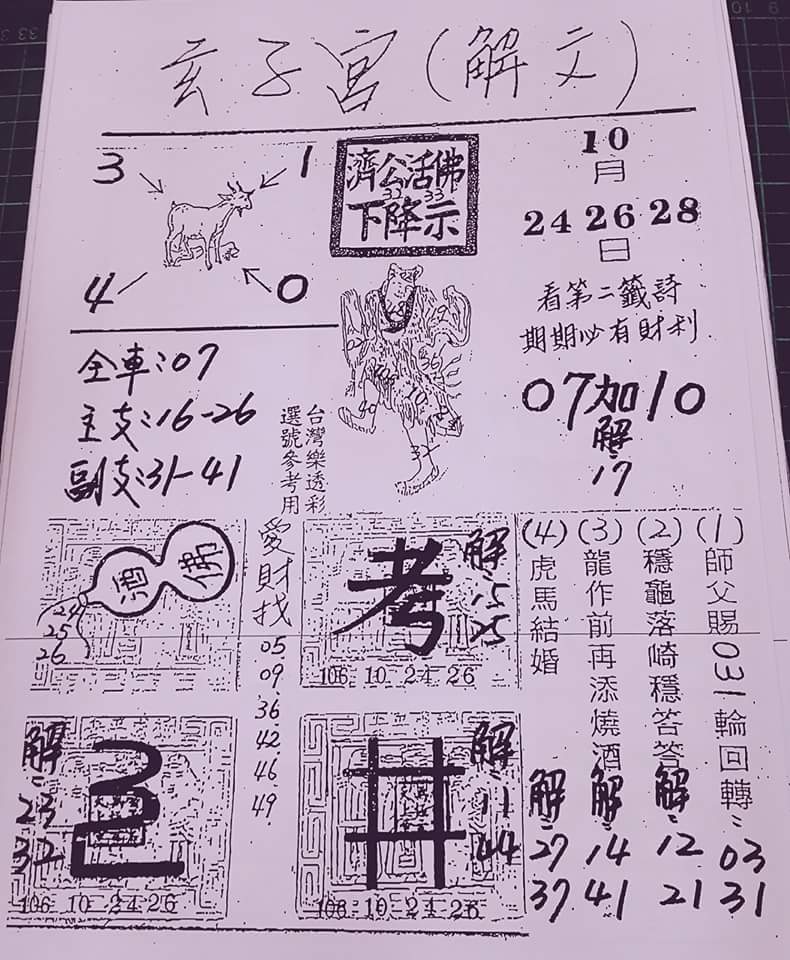 玄子宮（解文）
3 1
4 0
濟公活佛
33 33
下降示
10
月
24 26 28
日
看第二籤詩
期期必有財利
07加10
解:
17
全車:07
主支:16-26
副支:31-41
台灣樂透彩
選號參考用
酒 佛
24
25
26
愛財找
05
09
36
42
46
49
考
解:
15
25
106 10 24 26
解:
23
32
106 10 24 26
井
解:
11
44
106 10 24 26
(1)師父賜031輪回轉:
03
31
(2)穩龜落崎穩答答
解:
12
21
(3)龍作前再添燒酒
解:
14
41
(4)虎馬結婚
解:
27
37